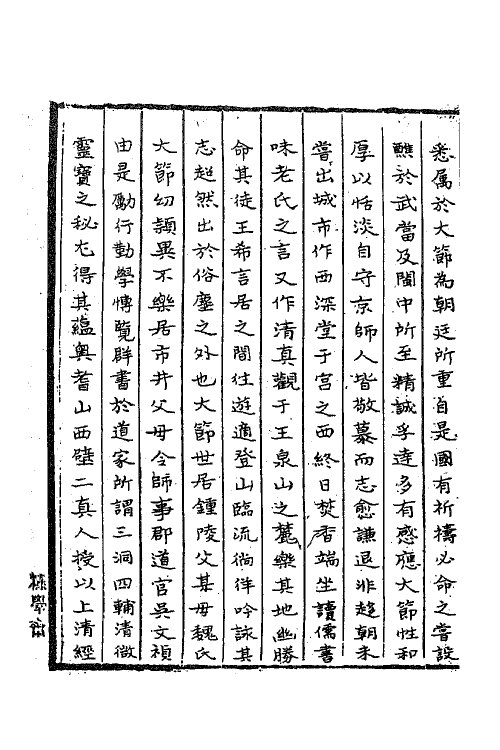 悉属於大節為朝廷所重自是國有祈禱必命之嘗設
醮於武當及閩中所至精誠孚達多有感應大節性和
厚以恬淡自守京師人皆敬慕而志愈謙退非趨朝未
嘗出城市作西深堂于宫之西終日焚香端坐讀儒書
味老氏之言又作清真觀于王泉山之麓樂其地幽勝
命其徒王希言居之間住遊適登山臨流徜徉吟詠其
志超然出於俗塵之外也大節世居鍾陵父某母魏氏
大節幼頴異不樂居市井父母令師事郡道官吳文禎
由是勵行勤學博覽群書於道家所謂三洞四輔清微
靈寶之秘尤得其蘊奥耆山西壁二真人授以上清經